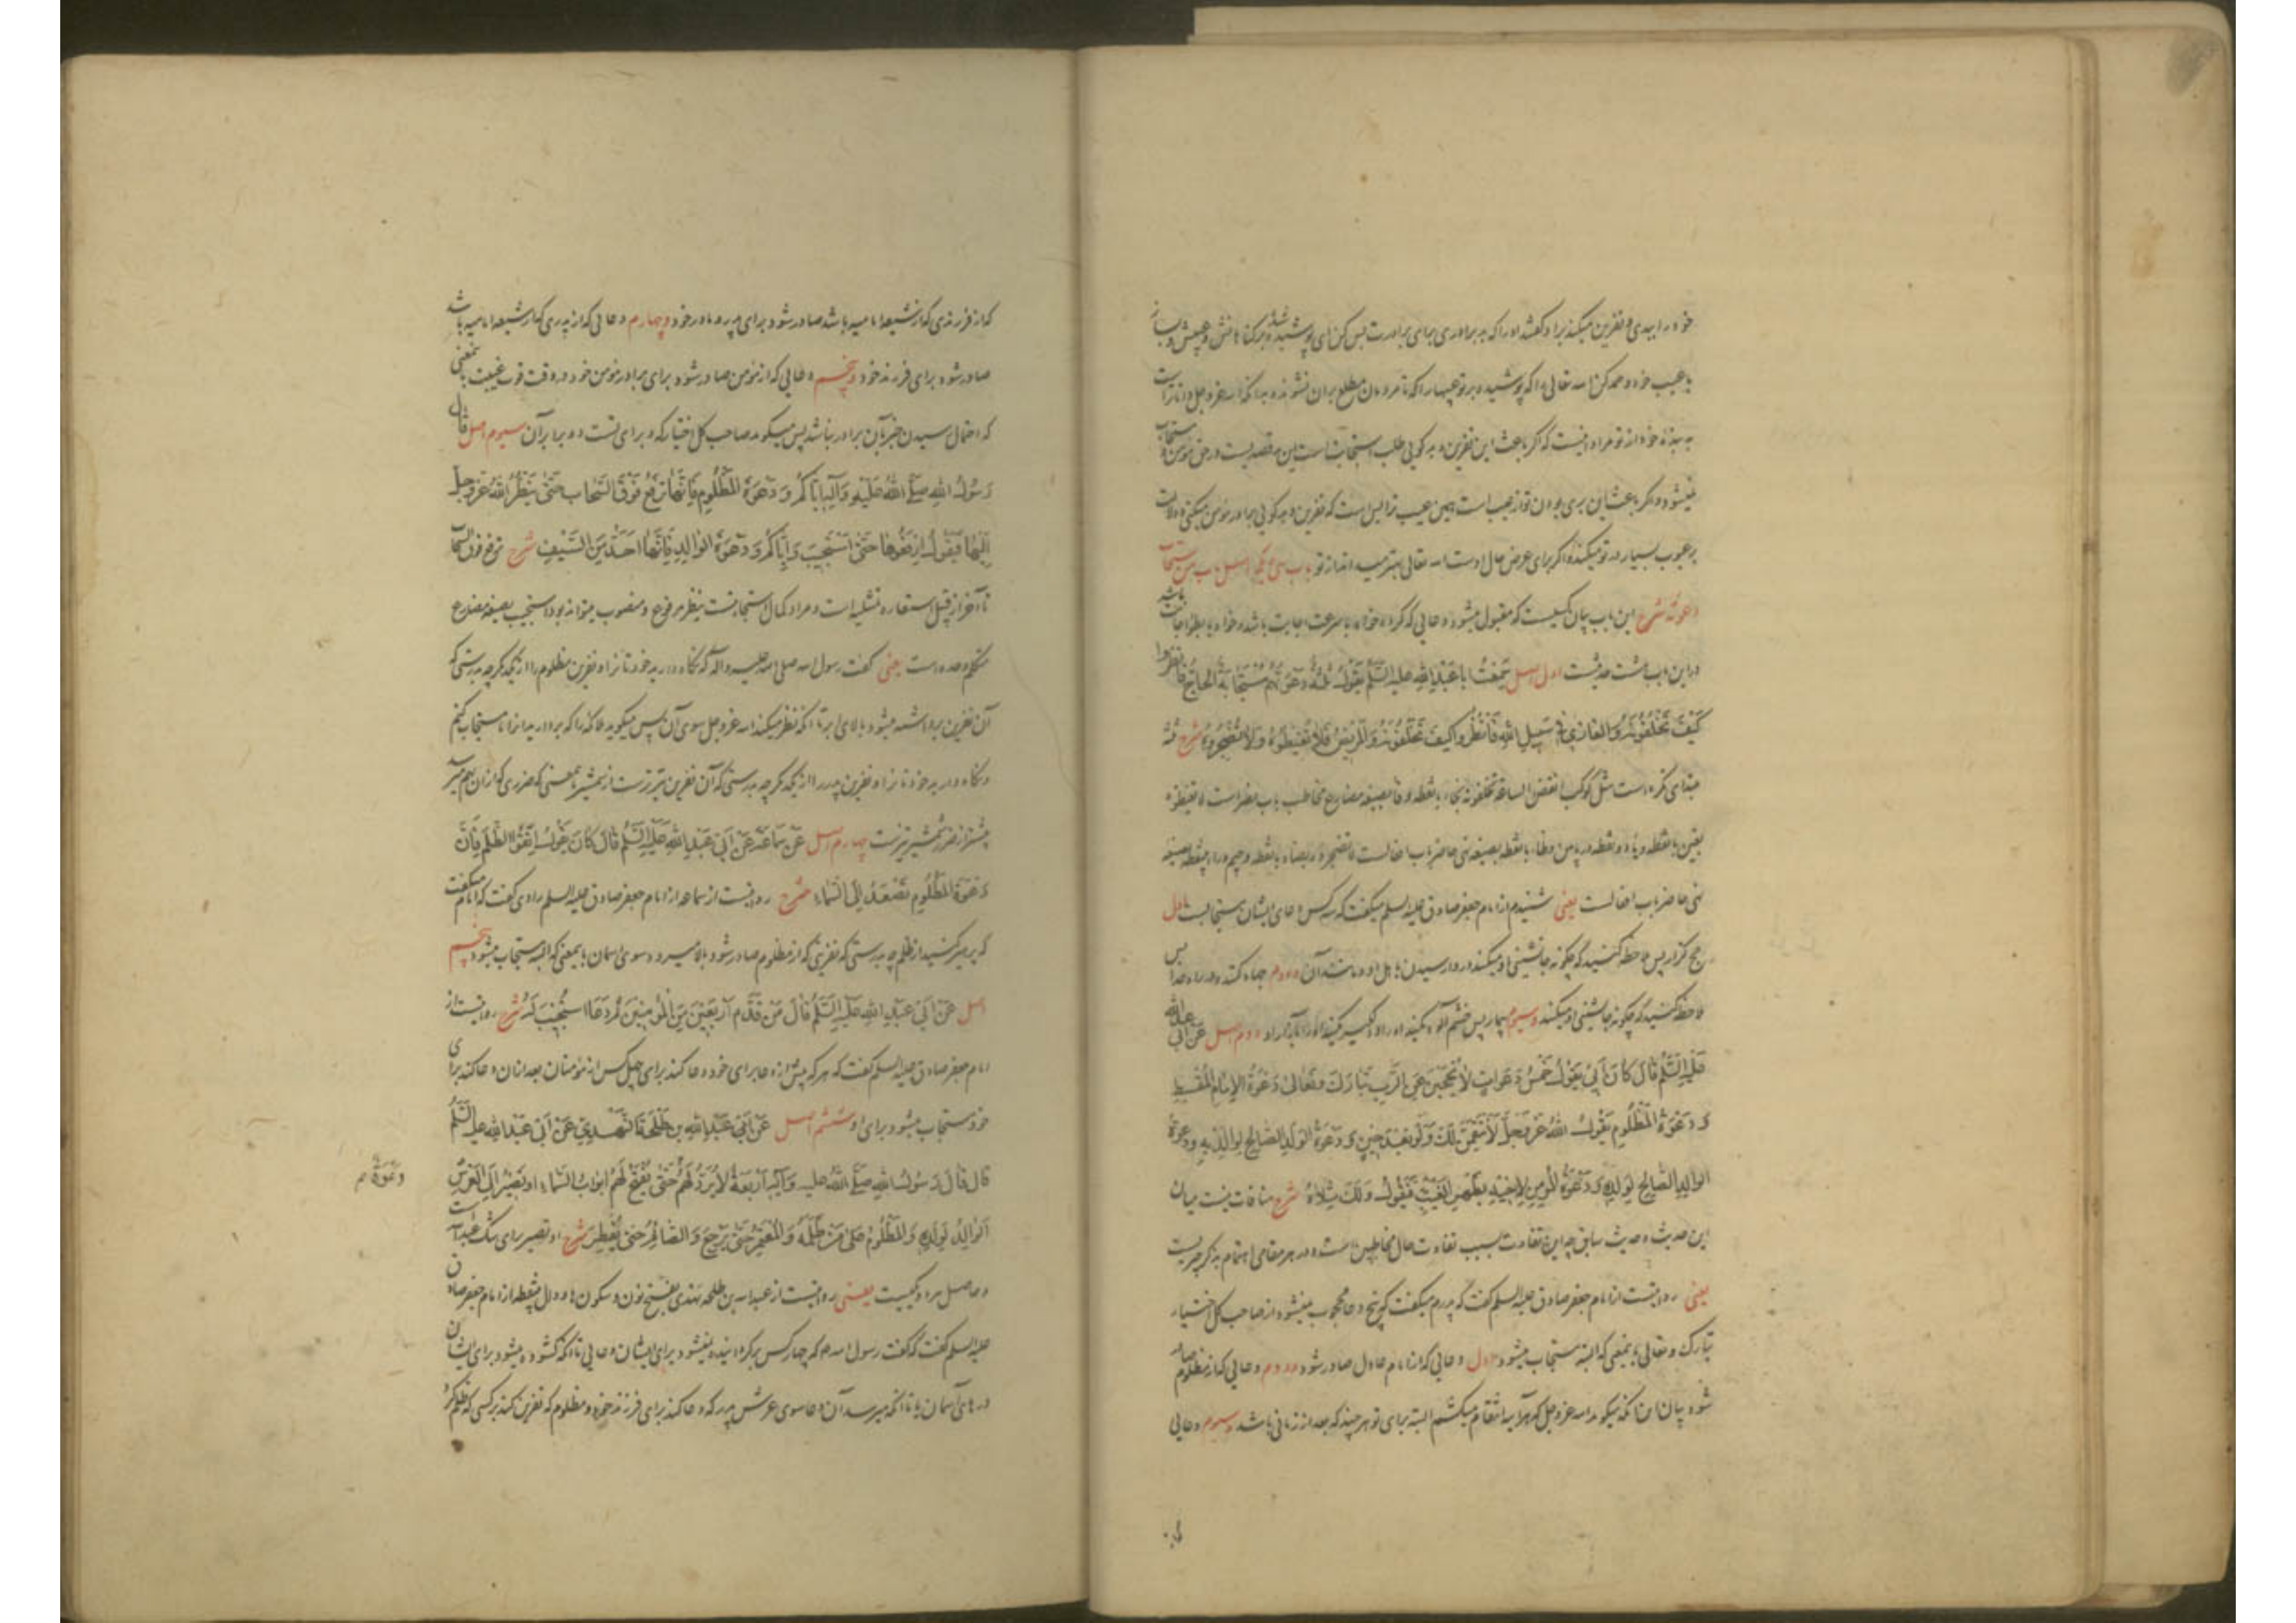 خود را ببدی و نفرین میکند برادر گفتند او را که بد برادری برای برادرت بس کن ای پوشیده شده بر گناهانش و عیبش و باز
با عیب خود و حمد کن الله تعالی را که پوشیده بر تو عیبها را که تا مردمان مطلع بر آن نشوند و بدانکه الله عز و جل داناتر است
به بندهٔ خود از تو مراد اینست که اگر باعث این نفرین و بدگویی طلب استجابت است این بد قصدیست در حق مؤمن مستجاب
نمیشود و اگر باعث این بری بودن تو از عیب است همین عیب ترا بس است که نفرین و بدگویی برادر مؤمن میکنی و دلالت
بر عیوب بسیار در تو میکند و اگر برای عرض حال اوست الله تعالی بهتر میداند از تو باب سی و یکم اصل باب من تستجاب
دعوته شرح این باب بیان کسیست که مقبول میشود دعایی که کرده خواه با سرعت اجابت باشد و خواه با بطوء اجابت باشد
در این باب هشت حدیثست اول اصل سَمِعْتُ اَبا عَبْدِ اللهِ علیه السّلم یَقُولُ ثَلثَةٌ دَعْوَتُهُمْ مُسْتَجابَةٌ الحاجُّ فانظروا
کَیْفَ تَخْلُفُونَهُ وَالغازی فی سَبیلِ اللهِ فَانْظُرُوا کَیْفَ تَخْلُفُونَهُ وَالْمَریضُ فَلا تُغیظُوهُ وَلا تُضْجِرُوهُ شرح ثلثة
مبتدای نکره است مثل کوکب انقض الساعة تخلفونه بخاء با نقطه و فا بصیغه مضارع مخاطب باب نصر است لا تغیظوه
بغین با نقطه و یاء دو نقطه در پایین و ظاء با نقطه بصیغه نهی حاضر باب افعالست لا تضجروه بضاد با نقطه و جیم و راء بینقطه بصیغه
نهی حاضر باب افعالست یعنی شنیدم از امام جعفر صادق علیه السلم میگفت که سه کس دعای ایشان مستجابست اول
حج گزار پس ملاحظه کنید که چگونه جانشینی او میکنند در وارسیدن باهل او و مانند آن و دوم جهاد کننده در راه خدا پس
ملاحظه کنید که چگونه جانشینی او میکنند و سیوم بیمار پس خشم آلود مکنید او را و دلگیر مکنید او را دوم اصل عن ابی عبد الله
عَلَیْهِ السَّلمُ قالَ کانَ اَبی یَقُولُ خَمْسُ دَعَواتٍ لا تُحْجَبْنَ عَنِ الرَّبِّ تَبارَکَ وَتَعالی دَعْوَةُ الاِمامِ المُقْسِطِ
وَ دَعْوَةُ المَظْلُومِ یَقُولُ اللهُ عَزَّ وَجَلَّ لَاَنْتَقِمَنَّ لَکَ وَلَوْ بَعْدَ حینٍ وَ دَعْوَةُ الوَلَدِ الصّالِحِ لِوالِدَیْهِ وَ دعوة
الوالِدِ الصّالِحِ لِوَلَدِهِ وَ دَعْوَةُ المُؤمِنِ لِاَخیهِ بِظَهْرِ الغَیْبِ فَیَقُولُ وَلَکَ مِثْلاهُ شرح منافات نیست میان
این حدیث و حدیث سابق چه این تفاوت بسبب تفاوت حال مخاطبین است و در هر مقامی اهتمام بذکر چیزیست
یعنی روایتست از امام جعفر صادق علیه السلم گفت که پدرم میگفت که پنج دعا محجوب نمیشود از صاحب کل اختیار
تبارک و تعالی باینمعنی که البته مستجاب میشود اول دعایی که از امام عادل صادر شود و دوم دعایی که از مظلوم صادر
شود بیان آن آنکه میگوید الله عز و جل که هر آینه انتقام میکشم البته برای تو هر چند که بعد از زمانی باشد و سیوم دعایی
که از فرزندی که از شیعه امامیه باشد صادر شود برای پدر و مادر خود و چهارم دعایی که از پدری که از شیعه امامیه باشد
صادر شود برای فرزند خود و پنجم دعایی که از مؤمن صادر شود برای برادر مؤمن خود در وقت غیبت بمعنی
که احتمال رسیدن خبر بآن برادر نباشد پس میگوید صاحب کل اختیار که و برای تست دو برابر آن سیوم اصل قال
رَسُولُ اللهِ صَلَّی اللهُ عَلَیْهِ وَآلِهِ اِیّاکُمْ وَ دَعْوَةَ المَظْلُومِ فَاِنَّها تُرْفَعُ فَوْقَ السَّحابِ حَتّی یَنْظُرَ اللهُ عَزَّ وَجَلَّ
اِلَیْها فَیَقُولُ اِرْفَعُوها حَتّی اَسْتَجیبَ وَ اِیّاکُمْ وَ دَعْوَةَ الوالِدِ فَاِنَّها اَحَدُّ مِنَ السَّیْفِ شرح ترفع فوق السحاب
تا آخر از قبیل استعاره تمثیلیه است و مراد کمال استجابتست ینظر مرفوع و منصوب میتواند بود استجیب بصیغه مضارع
متکلم وحده است یعنی گفت رسول الله صلی الله علیه و آله که نگاه دارید خود تا نرا و نفرین مظلوم را از یکدیگر چه بدرستی که
آن نفرین برداشته میشود بالای ابر تا آنکه نظر میکند الله عز و جل سوی آن پس میگوید ملائکه را که بردارید آنرا تا مستجاب کنم
و نگاه دارید خود تا نرا و نفرین پدر را از یکدیگر چه بدرستی که آن نفرین تیزترست از شمشیر باینمعنی که ضرری که از آن بهم میرسد
بیشتر از ضرر شمشیر تیزست چهارم اصل عَنْ سَماعَةَ عَنْ اَبی عَبْدِ اللهِ عَلَیْهِ السَّلمُ قالَ کانَ یَقُولُ اِتَّقُوا الظُّلْمَ فَاِنَّ
دَعْوَةَ المَظْلُومِ تَصْعَدُ اِلَی السَّماءِ شرح روایتست از سماعه از امام جعفر صادق علیه السلم راوی گفت که امام میگفت
که پرهیز کنید از ظلم چه بدرستی که نفرینی که از مظلوم صادر شود بالا میرود سوی آسمان باینمعنی که البته مستجاب میشود پنجم
اصل عَنْ اَبی عَبْدِ اللهِ عَلَیْهِ السَّلمُ قالَ مَنْ قَدَّمَ اَرْبَعینَ مِنَ المُؤمِنینَ ثُمَّ دَعا اسْتُجیبَ لَهُ شرح روایتست از
امام جعفر صادق علیه السلم گفت که هر که پیش از دعا برای خود دعا کند برای چهل کس از مؤمنان بعد از آن دعا کند برای
خود مستجاب میشود برای او ششم اصل عَنْ اَبی عَبْدِ اللهِ بن طَلْحَةَ النَّهْدِیِّ عَنْ اَبی عَبْدِ اللهِ علیه السَّلمُ
قالَ قالَ رَسُولُ اللهِ صَلَّی اللهُ علیه وَآلِهِ اَرْبَعَةٌ لا تُرَدُّ لَهُمْ حَتّی یُفْتَحَ لَهُمْ اَبْوابُ السَّماءِ او تَصیرُ اِلَی العَرْشِ
دَعْوَةٌ صح
اَلوالِدُ لِوَلَدِهِ وَالمَظْلُومُ عَلی مَنْ ظَلَمَهُ وَالمُعْتَمِرُ حَتّی یَرْجِعَ وَالصّائِمُ حَتّی یُفْطِرَ شرح او تصیر برای شک عبد الله است
و حاصل هر دو یکیست یعنی روایتست از عبد الله بن طلحه نهدی بفتح نون و سکون ها و دال بینقطه از امام جعفر صادق
علیه السلم گفت که گفت رسول الله ص که چهار کس برگردانیده نمیشود برای ایشان دعایی تا آنکه گشوده میشود برای ایشان
درهای آسمان یا تا آنکه میرسد آن دعا سوی عرش پدر که دعا کند برای فرزند خود و مظلوم که نفرین کند بر کسی که ظلم کرد